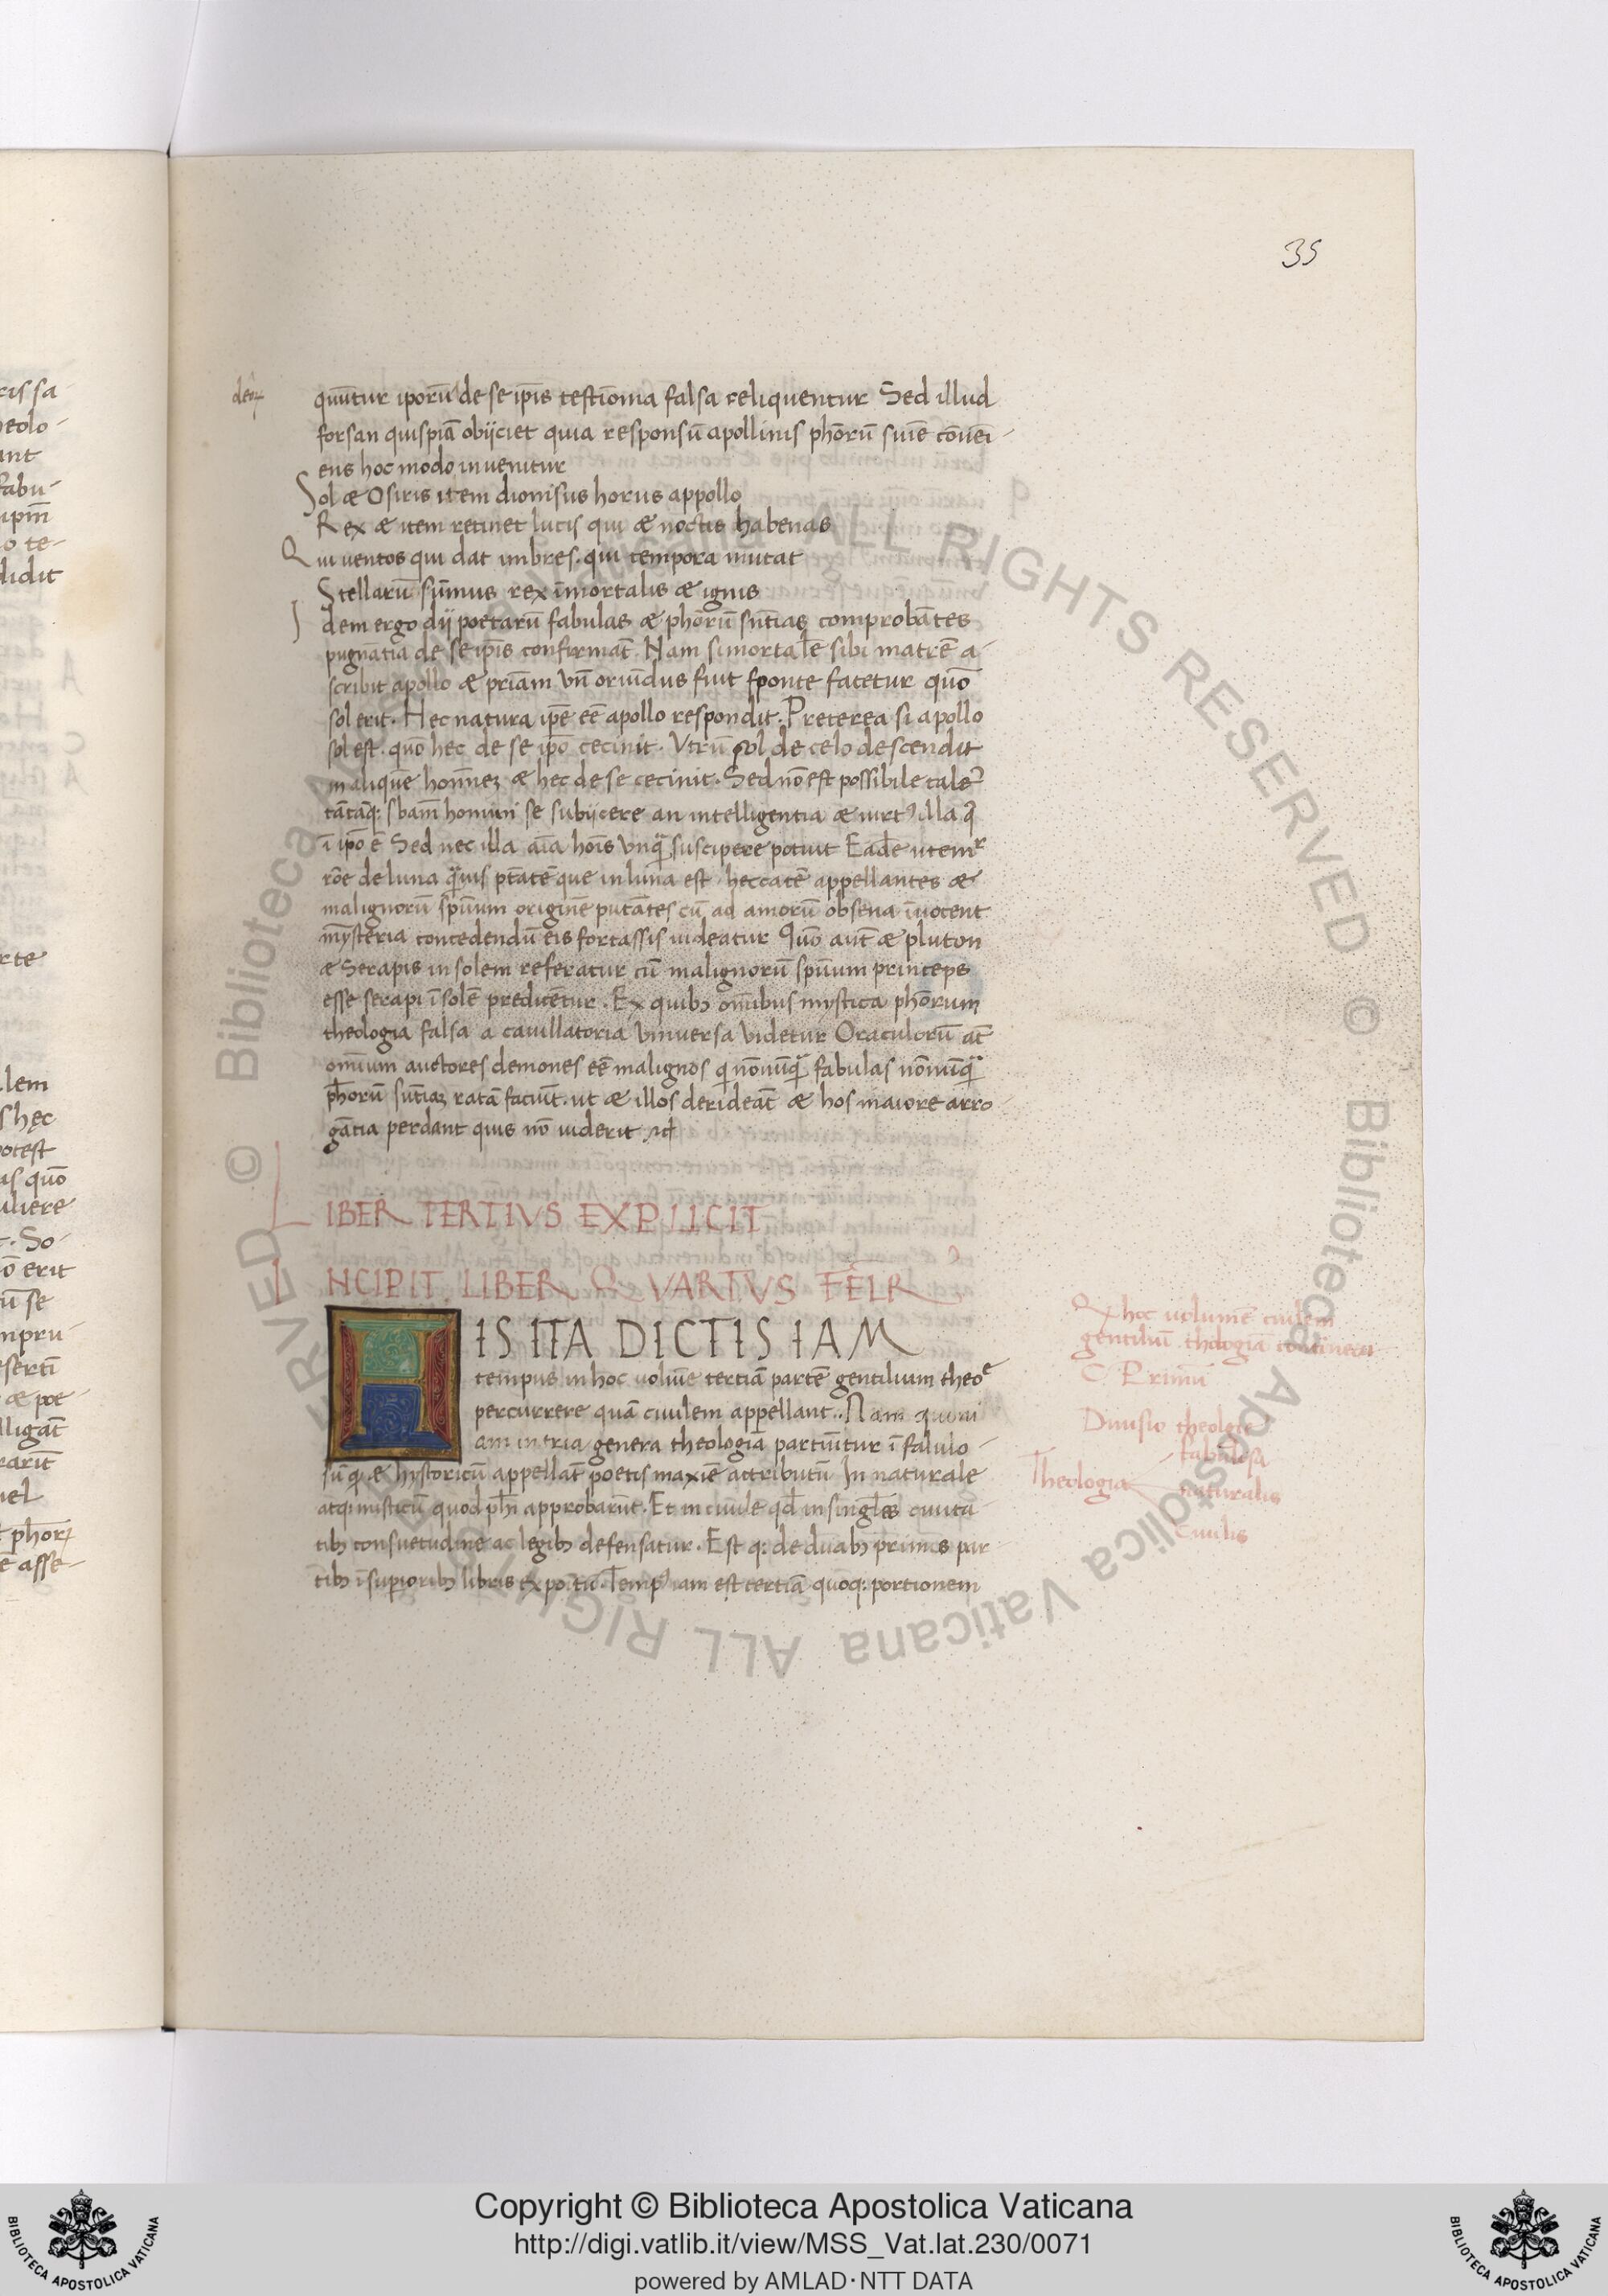 35
quūtur iporū de se ip̄is testīonia falsa reliquentur Sed illud
forsan quispiā obijciet quia responsū apollinis phōrū suīe cōueī-
ens hoc modo inuenitur
Sol æ Osiris item dionisus horus appollo
Rex æ item retinet lucis qui æ noctis habenas
Qui uentos qui dat imbres. qui tempora mutat
Stellarū sūmus rex īmortalis æ ignis
Idem ergo dij poetarū fabulas æ phōrū sn̄tias comprobātes
pugnātia de se ip̄is confirmāt. Nam si mortalē sibi matrē a-
scribit apollo æ priam vn̄ oriūdus fuit sponte fatetur quō
sol erit. Hec natura ip̄e eē apollo respondit. Preterea si apollo
sol est. quō hec de se ipō cecinit. Vtrū sol de celo descendit
in aliquē homīnez æ hec de se cecinit. Sed nō est possibile tale
tātāq; sbam̄ homini se subijcere an intelligentia æ uirtꝰ illa q̄
ī ipō ē Sed nec illa aīa hoīs vnq̄ suscipere potuit Eadē utemʳ
rōe de luna q̄uis ptātē que in luna est heccatē appellantes æ
malignorū spūum originē putātes cū ad amorū obsena īuocent
mysteria concedendū eis fortassis uideatur Quō aūt æ pluton
æ Serapis in solem referatur cū malignorū spūum princeps
esse serapi ī solē predicētur. Ex quibꝫ omībus mystica phōrum
theologia falsa a cauillatoria vniuersa videtur Oraculorū āt
omīum auctores demones eē malignos q̇ nōnūq̄ fabulas nōnūq̄
ph̄orū sn̄tiaꝫ ratā faciūt. ut æ illos derideāt æ hos maiore arro-
gātia perdant quis nō uiderit
LIBER TERTIVS EXPLICIT
INCIPIT LIBER QVARTVS FĒLR
HIS ITA DICTIS IAM
tempus in hoc uolūe tertiā partē gentilium theoᵉ
percurrere quā ciuilem appellant. Nam quoni
am in tria genera theologiā partiūtur ī fabulo-
sū q̇ æ hystoricū appellāt poetis maxīe attributū In naturale
atq; misticū quod ph̄i approbarūt. Et in ciuile qd̄ in singl̄es ciuita-
tibꝫ consuetudine ac legibꝫ defensatur. Est q; de duabꝫ primis par-
tibꝫ ī supioribꝫ libris expoitū. Tempꝰ iam est tertiā quoq; portionem
Q hoc uolumē ciuilem
gentiliū theologiā continet
C. Primū
Diuisio theologie
fabulosa
Theologia naturalis
Ciuilis
© Biblioteca Apostolica Vaticana ALL RIGHTS RESERVED
Copyright © Biblioteca Apostolica Vaticana
http://digi.vatlib.it/view/MSS_Vat.lat.230/0071
powered by AMLAD·NTT DATA
BIBLIOTECA APOSTOLICA VATICANA
BIBLIOTECA APOSTOLICA VATICANA